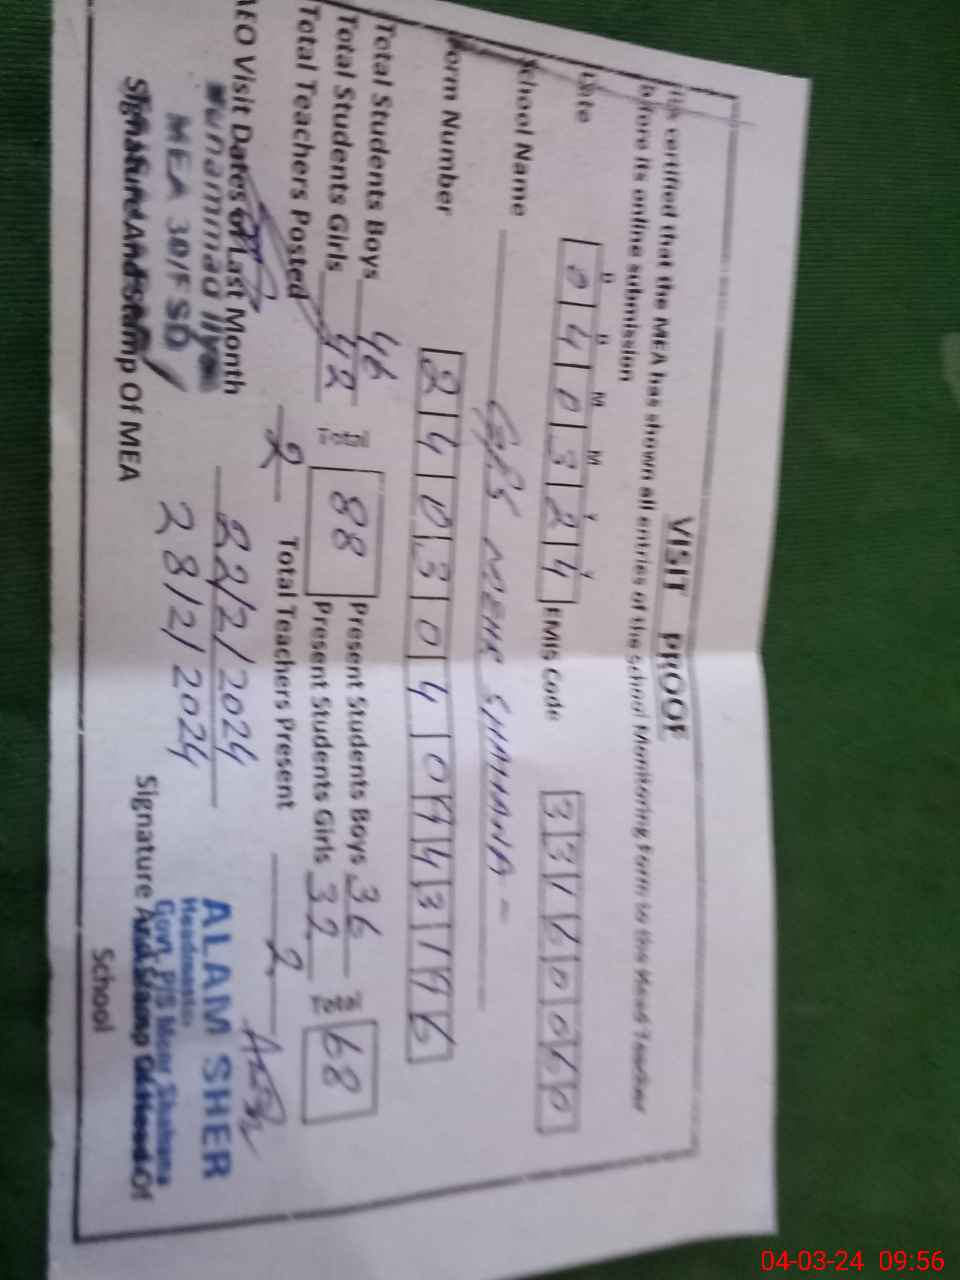 VISIT PROOF
It is certified that the MEA has shown all entries of the school Monitoring Form to the Head Teacher
before its online submission
D D M M Y Y
Date 040324 EMIS Code 33160060
School Name GPS MEHR SHAHANA
Form Number
Total Students Boys 46 Present Students Boys 36
Total Students Girls 42 Total 88 Present Students Girls 32 68
Total Teachers Posted 2 Total Teachers Present 2
AEO Visit Dates of Last Month 22/2/2024
28/2/2024
Muhammad Ilyas
MEA 30/FSD
Signature And Stamp Of MEA
ALAM SHER
Headmaster
Govt. P/S Mehr Shahana
Signature And Stamp Of Head Of
School
04-03-24 09:56